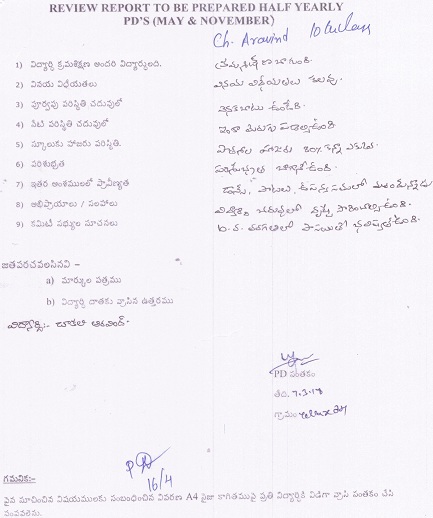 REVIEW REPORT TO BE PREPARED HALF YEARLY
PD'S (MAY & NOVEMBER)
Ch. Aravind 10 Class
1) విద్యార్థి క్రమశిక్షణ అందరి విద్యార్థులది. క్రమశిక్షణ బాగుంది.
2) వినయ విధేయతలు వినయ విధేయతలు కలవు.
3) పూర్వపు పరిస్థితి చదువులో వెనకబాటు ఉండేది.
4) నేటి పరిస్థితి చదువులో ఇంకా మెరుగు పడాల్సి ఉంది.
5) స్కూలుకు హాజరు పరిస్థితి. హాజరు 80%
6) పరిశుభ్రత పరిశుభ్రత బాగానే ఉంది.
7) ఇతర అంశములలో ప్రావీణ్యత డాన్సు, పాటలు,
8) అభిప్రాయాలు / సలహాలు
9) కమిటీ సభ్యుల సూచనలు
జతపరచవలసినవి –
a) మార్కుల పత్రము
b) విద్యార్థి దాతకు వ్రాసిన ఉత్తరము
విద్యార్థి:- చూడలి అరవింద్.
PD సంతకం
తేది. 7.3.18
గ్రామం
16/4
గమనిక:–
పైన సూచించిన విషయములకు సంబంధించిన వివరణ A4 సైజు కాగితముపై ప్రతి విద్యార్థికి విడిగా వ్రాసి సంతకం చేసి
పంపవలెను.